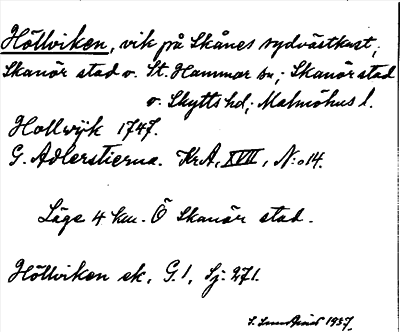 Höllviken, vik på Skånes sydvästkust;
Skanör stad o. St. Hammar sn; Skanör stad
o. Skytts hd; Malmöhus l.
Hollwÿk 1747.
G. Adlerstierna. KrA, XVII, N:o 14.
Läge 4 km. Ö Skanör stad.
Höllviken ek, G.1, Sj: 271.
S. 1937.